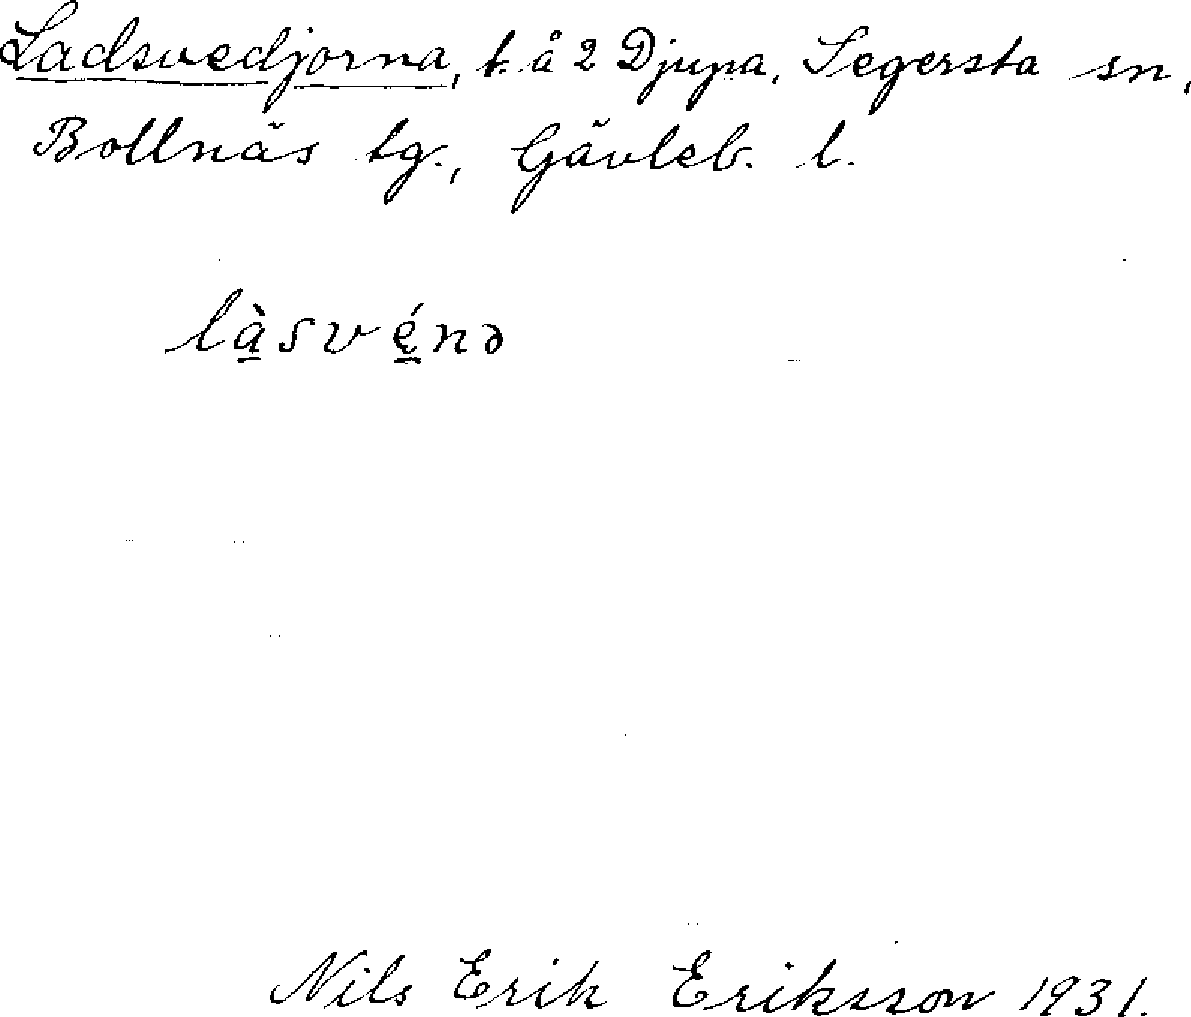 Ladsvedjorna, t. å 2 Djupa, Segersta sn,
Bollnäs tg., Gävleb. l.
là̱svę̱́nə
Nils Erik Eriksson 1931.